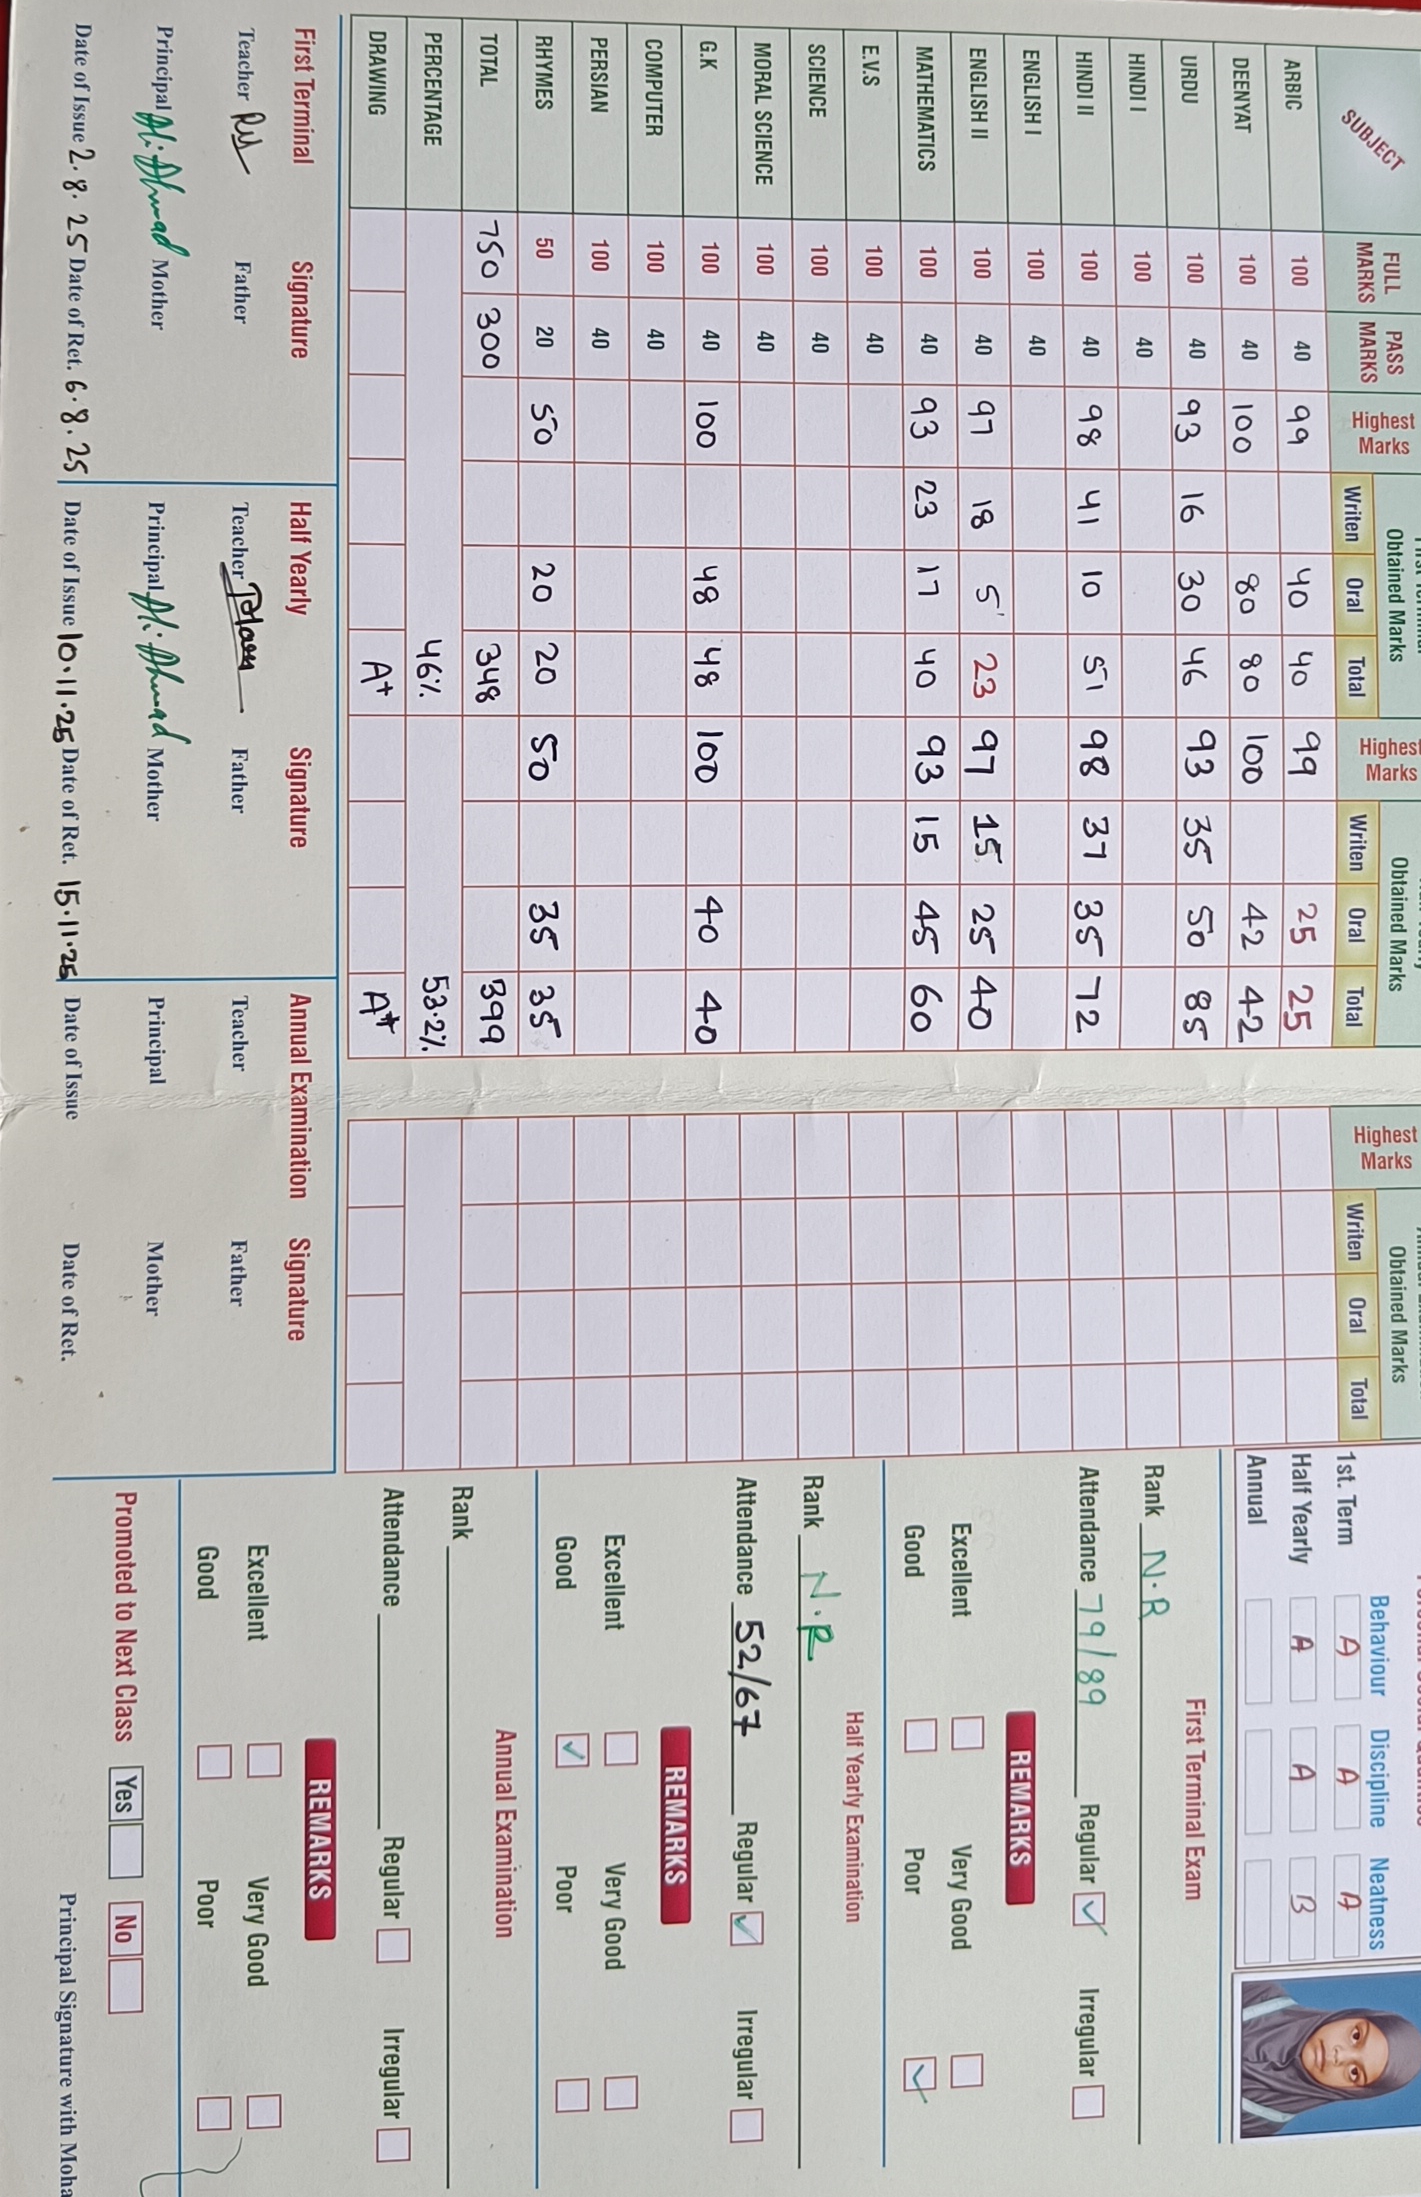 SUBJECT FULL MARKS PASS MARKS Highest Marks Obtained Marks Highest Marks Obtained Marks Highest Marks Obtained Marks
Writen Oral Total Writen Oral Total Writen Oral Total
ARBIC 100 40 99 40 40 99 25 25
DEENYAT 100 40 100 80 80 100 42 42
URDU 100 40 93 16 30 46 93 35 50 85
HINDI I 100 40
HINDI II 100 40 98 41 10 51 98 37 35 72
ENGLISH I 100 40
ENGLISH II 100 40 97 18 5 23 97 15 25 40
MATHEMATICS 100 40 93 23 17 40 93 15 45 60
E.V.S 100 40
SCIENCE 100 40
MORAL SCIENCE 100 40
G.K 100 40 100 48 48 100 40 40
COMPUTER 100 40
PERSIAN 100 40
RHYMES 50 20 50 20 20 50 35 35
TOTAL 750 300 348 399
PERCENTAGE 46% 53.2%
DRAWING A+ A+
First Terminal Signature
Teacher Father
Principal Ali Ahmad Mother
Date of Issue 2.8.25 Date of Ret. 6.8.25
Half Yearly Signature
Teacher Father
Principal Ali Ahmad Mother
Date of Issue 10.11.25 Date of Ret. 15.11.25
Annual Examination Signature
Teacher Father
Principal Mother
Date of Issue Date of Ret.
Behaviour Discipline Neatness
1st. Term A A A
Half Yearly A A B
Annual
First Terminal Exam
Rank N.R
Attendance 79/89 Regular ✓ Irregular
REMARKS
Excellent Very Good
Good Poor ✓
Half Yearly Examination
Rank N.R
Attendance 52/67 Regular ✓ Irregular
REMARKS
Excellent Very Good
Good ✓ Poor
Annual Examination
Rank
Attendance Regular Irregular
REMARKS
Excellent Very Good
Good Poor
Promoted to Next Class Yes No
Principal Signature with